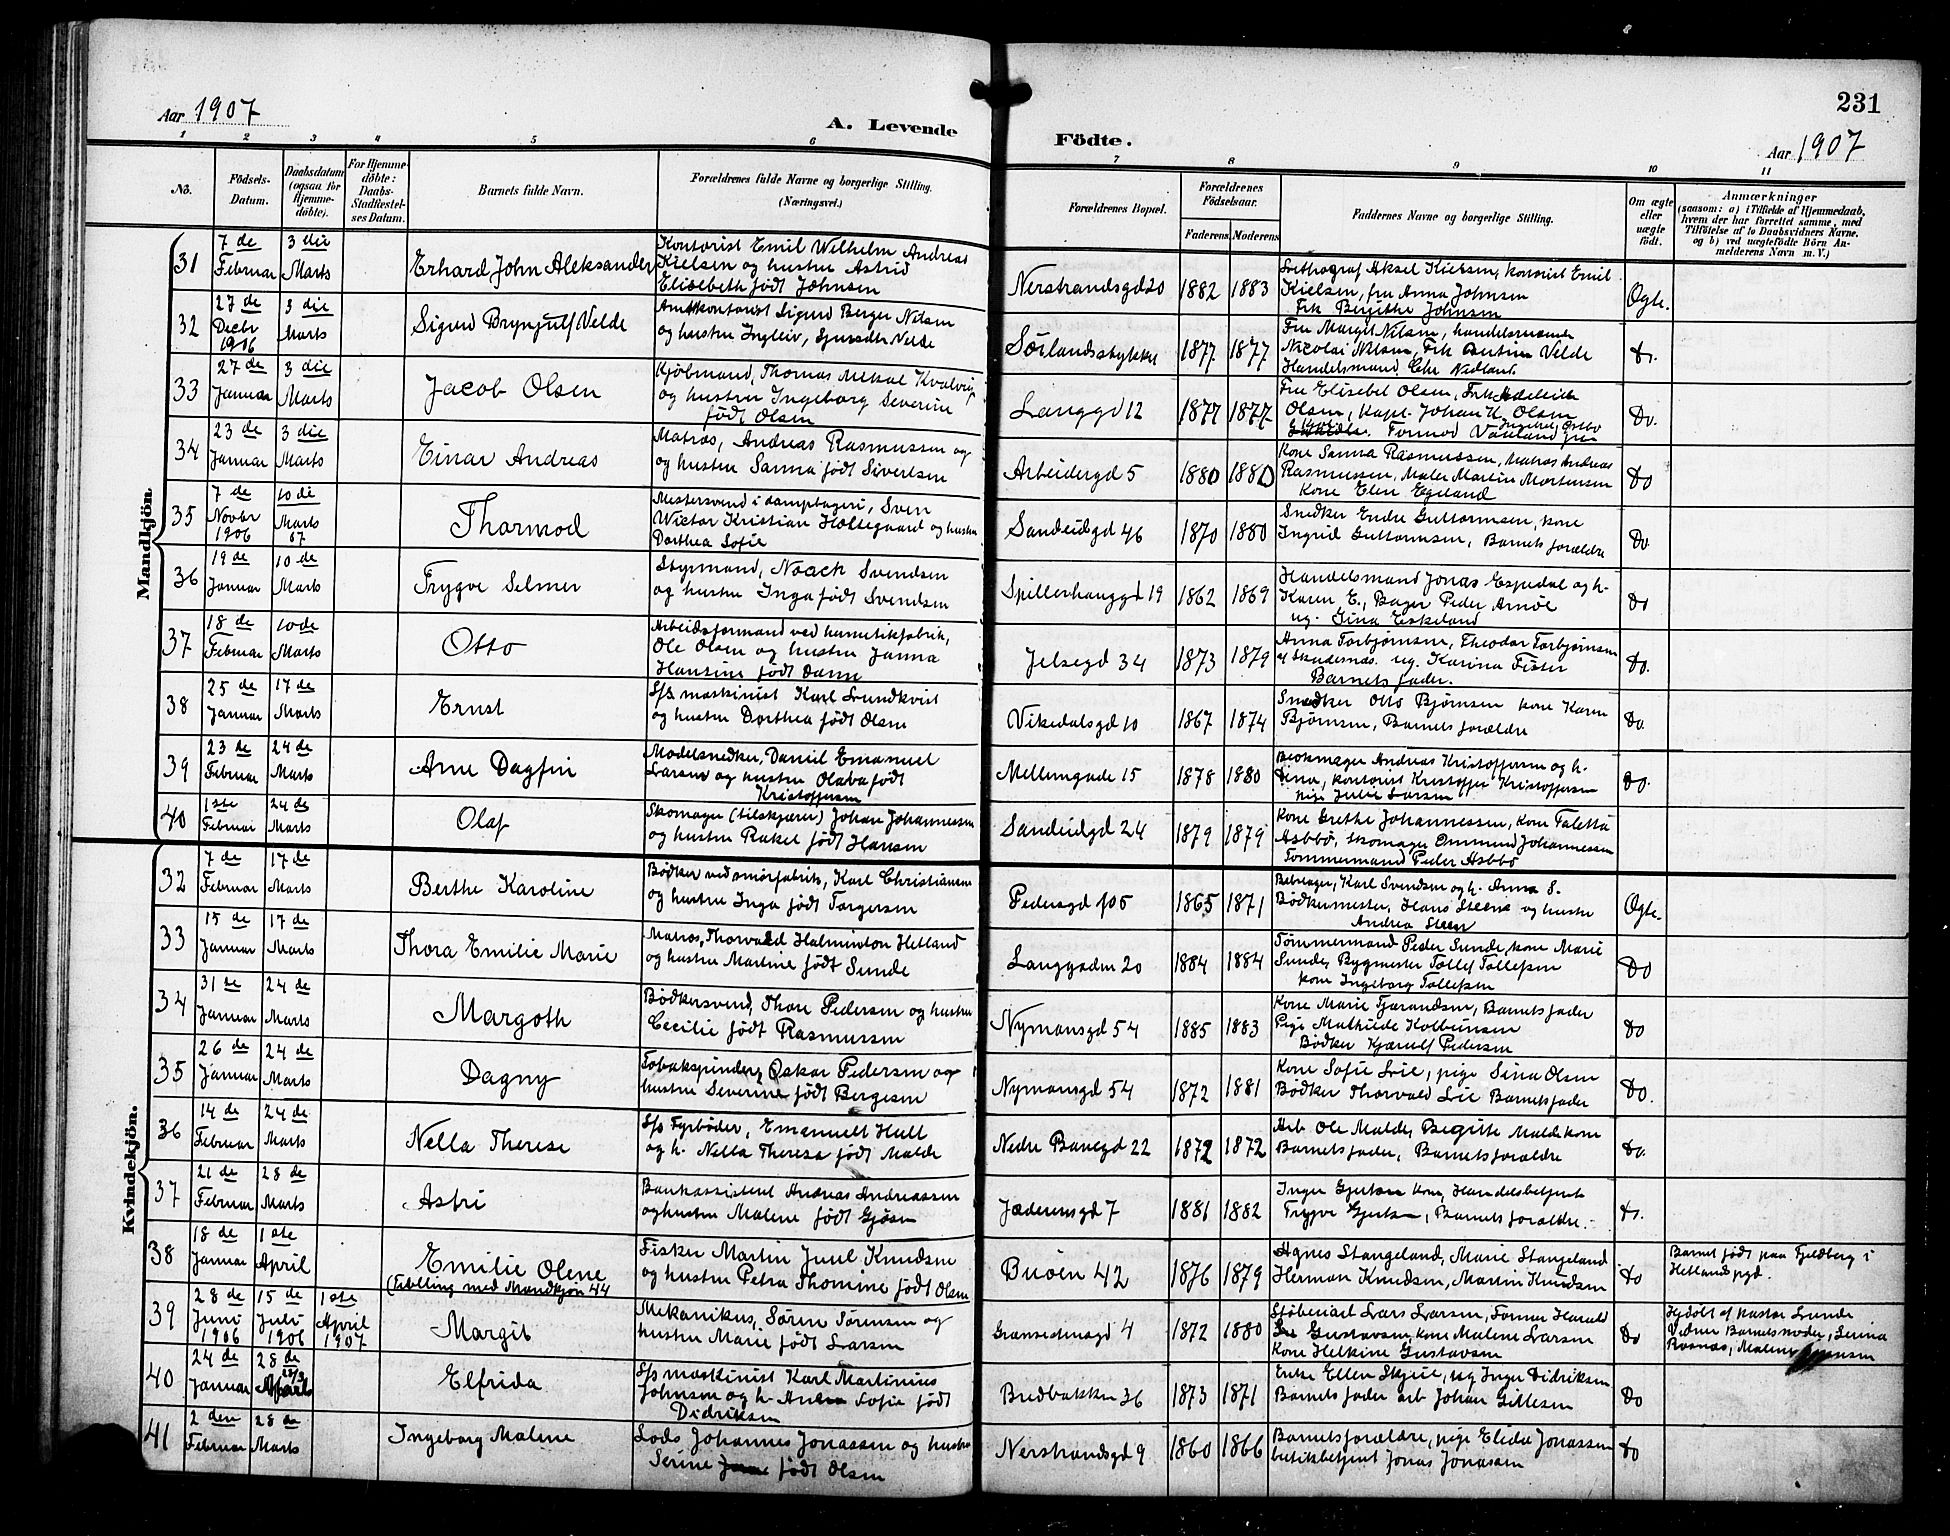 231
Aar 1907
A. Levende
Födte.
Aar 1907
1 2 3 4 5 6 7 8 9 10 11
Nö.
Födsels-Datum.
Daabsdatum (ogsaa for Hjemme-döbte).
For Hjemme-döbte: Daabs-Stadfæstelses Datum.
Barnets fulde Navn.
Forældrenes fulde Navne og borgerlige Stilling. (Næringsvei.)
Forældrenes Bopæl.
Forældrenes Födselsaar.
Faderens. Moderens.
Faddernes Navne og borgerlige Stilling.
Om ægte eller uægte födt.
Anmærkninger
(saasom: a) i Tilfælde af Hjemmedaab, hvem der har forrettet samme, med Tilföielse af to Daabsvidners Navne, og b) ved uægtefödte Börn Anmelderens Navn m. V.)
Mandkjön.
31 7de Februar 3die Marts Erhard John Aleksander
Kontorist Emil Wilhelm Andreas
Kielsen og hustru Astrid
Elisebeth født Johnsen
Nerstrandsgd 20 1882 1883
Lithograf Aksel Kielsen, kontorist Emil
Kielsen, fru Anna Johnsen
Frk Bergithe Johnsen
Ægte.
32 27de Decbr 1906 3die Marts Sigurd Brynjulf Velde
Amtskontorist Sigurd Berger Nilsen
og hustru Ingleiv, Velde
Sørlandsstykket 1877 1877
Fru Margit Nilsen, handelsmand
Nicolai Nilsen, Frk Velde
Handelsmand Chr Nedland
Do.
33 27de Januar 3die Marts Jacob Olsen
Kjøbmand, Thomas Mikal Kvalevig
og hustru Ingeborg Severine
født Olsen
Langgd 12 1877 1877
Fru Elisebet Olsen, Frk
Olsen, Kapt. Johan K. Olsen
Do.
34 23de Januar 3die Marts Einar Andreas
Matros, Andreas Rasmussen og
og hustru Sanna født Sivertsen
Arbeidergd 5 1880 1880
Kone Sanna Rasmussen, Matros Andreas
Rasmussen, Maler Martin Mortensen
Kone Elen Egeland
Do
35 7de Novbr 1906 10de Marts 07 Thormod
Mestersvend i damptageri, Sven
Wictor Kristian Holtegaard og hustru
Dorthea Sofie
Sandeidgd 46 1870 1880
Snedker Endre Guttormsen, kone
Ingrid Guttormsen, Barnets forældre
Do
36 19de Januar 10de Marts Trygve Selmer
Styrmand, Noach Svendsen
og hustru Inga født Svendsen
Spillerhauggd 19 1862 1869
Handelsmand Jonas Espedal og h.
Karen E., Bager Peder Arnøe
ug. Tina Eskeland
Do
37 18de Februar 10de Marts Otto
Arbeidsformand ved hermetikfabrik,
Ole Olsen og hustru Janna
Hansine født Dame
Jelsegd 34 1873 1879
Anna Torbjørnsen, Theodor Torbjørnsen
af Skudesnæs. ug. Karina Fister
Barnets fader.
Do.
38 25de Januar 17de Marts Ernst
S/s maskinist Karl Lundkvist
og hustru Dorthea født Olsen
Vikedalsgd 10 1867 1874
Snedker Otto Bjørnsen kone Karen
Bjørnsen, Barnets forældre
Do.
39 23de Februar 24de Marts Arne Dagfin
Modelsnedker, Daniel Emanuel
Larsen og hustru Olava født
Kristoffersen
Mellemgade 15 1878 1880
Blokmager Andreas Kristoffersen og h.
Dina, kontorist Kristoffer Kristoffersen
Pige Julie Larsen
Do.
40 1ste Februar 24de Marts Olaf
Skomager (tilskjærer) Johan Johannessen
og hustru Rakel født Hansen
Sandeidgd 24 1879 1879
Kone Grethe Johannessen, Kone Taletta
Asbbø, Skomager Ommund Johannessen
Tømmermand Peder Asbbø
Kvindekjön.
32 7de Februar 17de Marts Berthe Karoline
Bødker ved smørfabrik, Karl Christiansen
og hustru Inga født Torgersen
Pedersgd 105 1865 1871
Karl Svendsen og h. Anna S.
Bødkermester, Hans Steen og hustru
Andrea Steen
Ægte.
33 15de Januar 17de Marts Thora Emilie Marie
Matros, Thorvald Halminton Hetland
og hustru Martine født Sunde
Langgaden 20 1884 1884
Tømmermand Peder Sunde, kone Marie
Sunde, Bygmester Tollef Tollefsen
kone Ingeborg Tollefsen
Do
34 31te Januar 24de Marts Margoth
Bødkersvend, Thore Pedersen og hustru
Cecilie født Rasmussen
Nymansgd 54 1885 1883
Kone Marie Tjerandsen, Barnets fader
Pige Mathilde Kolbeinsen
Bødker Kjærulf Pedersen
Do
35 26de Januar 24de Marts Dagny
Tobakspinder, Oskar Pedersen og
hustru Severine født Bergesen
Nymansgd 54 1872 1881
Kone Sofie Lie, pige Sina Olsen
Bødker Thorvald Lie Barnets fader
Do.
36 14de Februar 24de Marts Nella Therese
S/s Fyrbøder, Emanuelt Hall
og h. Nella Theresa født Malde
Nedre Banegd 22 1872 1872
Arb Ole Malde, Begitte Malde kone
Barnets fader, Barnets forældre
Do.
37 21de Februar 28de Marts Astri
Bankassistent Andreas Andreassen
og hustru Malene født Gjøsen
Jæderensgd 7 1881 1882
Inger Gjertsen kone, Handelsbetjent
Trygve Gjertsen, Barnets forældre.
Do.
38 18de Januar 1ste April Emilie Olene
(Tvilling med Mandkjøn 44
Fisker Martin Juul Knudsen
og hustru Petra Thomine født Olsen
Buøen 42 1876 1879
Agnes Stangeland, Marie Stangeland
Herman Knudsen, Martin Knudsen
Do
Barnet født paa Fjeldberg i
Hetlands pgd.
39 28de Juni 1906 15de Juli 1906 1ste April 1907 Margit
Mekanikus, Søren Sørensen og
hustru Marie født Larsen
Grønsedmagd 4 1872 1880
Støberiarb Lars Larsen, Former Harald
Gustavsen, kone Malene Larsen
Kone Helkine Gustavsen
Do
Hjdøbt af Pastor Lunde
Vidner Barnets moder, Serina
Rosnæs, Malene
40 24de Januar 28de Marts Elfrida
S/s maskinist Karl Martinius
Johnsen og h. Sofie født
Didriksen
Bredbakken 36 1873 1871
Enke Ellen Skjeie, ug Inger Didriksen
Barnets fader arb Johan Gillesen
Do
41 2den Februar 28de Marts Ingeborg Malene
Lods Johannes Jonassen og hustru
Serine født Olsen
Nerstrandsgd 9 1860 1866
Barnets forældre, pige Elida Jonassen
butikbetjent Jonas Jonassen
Do